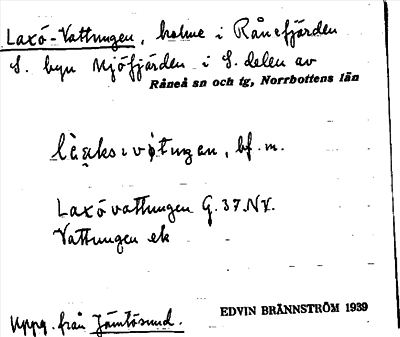 Laxö-Vattungen, holme i Rånefjärden
S. byn Mjöfjärden i S. delen av
Råneå sn och tg, Norrbottens län
bf. m.
Laxövattungen G. 37. NV.
Vattungen ek
Uppg. från Jämtösund.
EDVIN BRÄNNSTRÖM 1939